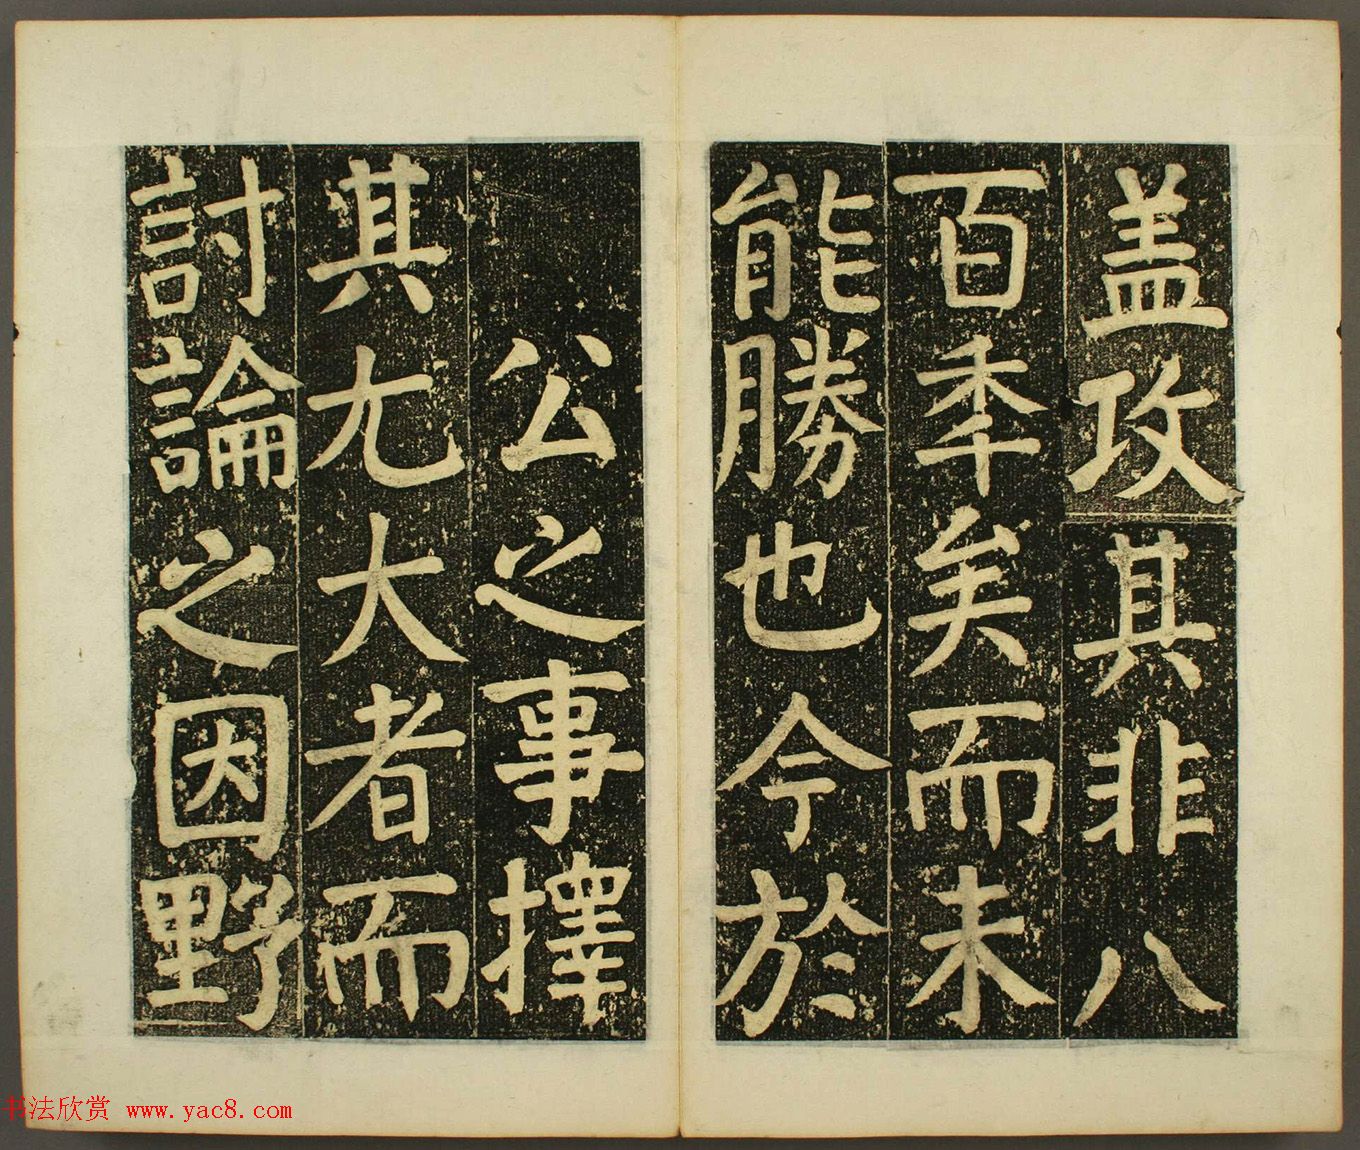 盖攻其非八
百秊矣而未
能勝也今於
公之事擇
其尤大者而
討論之因野
书法欣赏 www.yac8.com